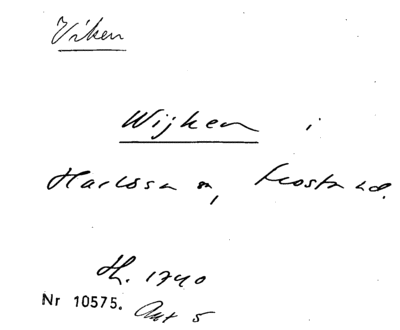 Viken
Wijken i
Harlösa sn, Frosta hd.
Hh. 1740
Nr 10575. Akt 5